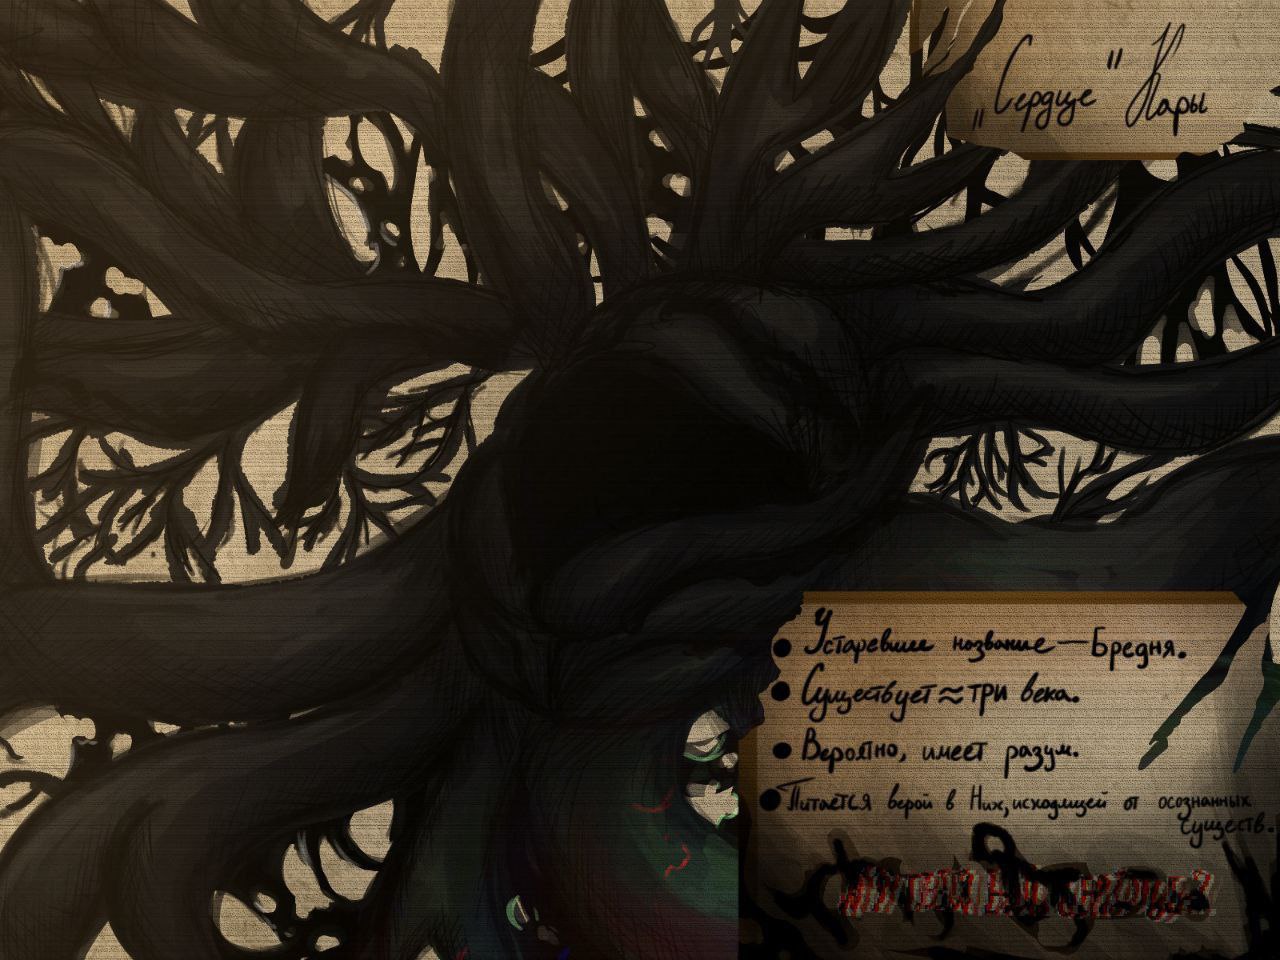 „Сердце" Нары
Устаревшее название — Бредня.
Существует ≈ три века.
Вероятно, имеет разум.
Питается верой в Них, исходящей от осознанных
существ.